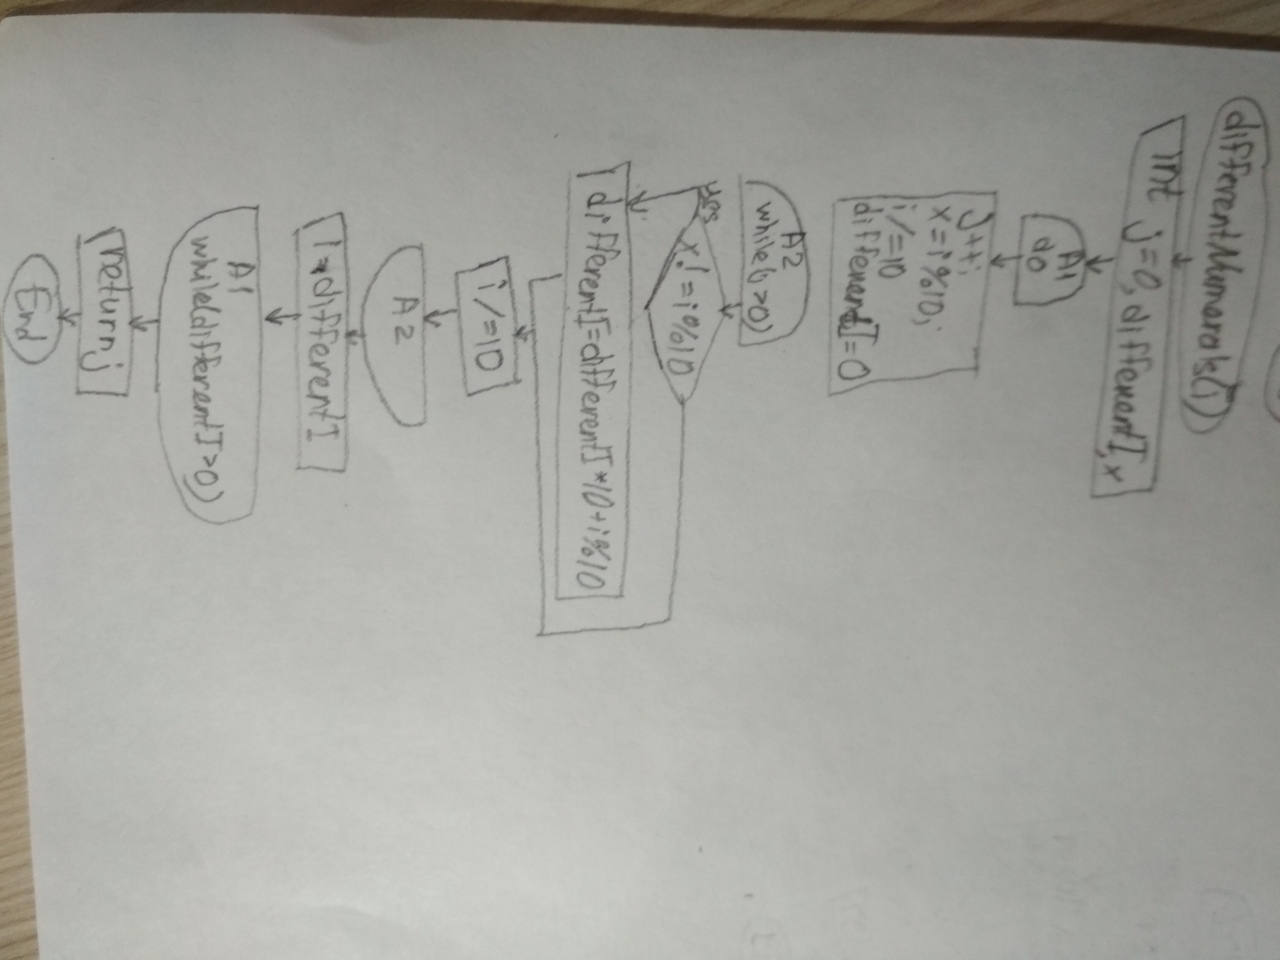 differentNumerals(i)
int j=0, differentI, x
A1
do
j++;
x=i%10;
i/=10
differentI=0
A2
while(i>0)
yes
x!=i%10
differentI=differentI*10+i%10
i/=10
A2
i=differentI
A1
while(differentI>0)
return j
End